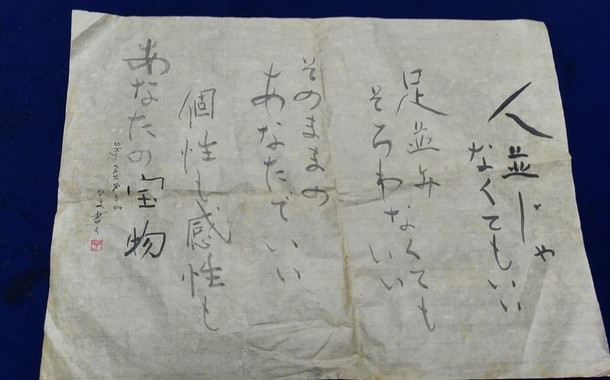 人並じゃ
なくてもいい
足並み
そろわなくても
いい
そのままの
あなたでいい
個性も感性も
あなたの宝物